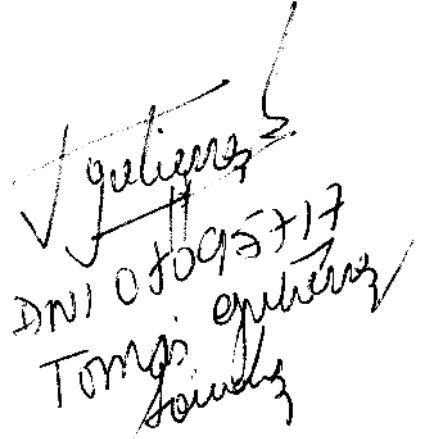 Tgutierrez S
DNI 07095717
Tomás Gutiérrez
Sánchez